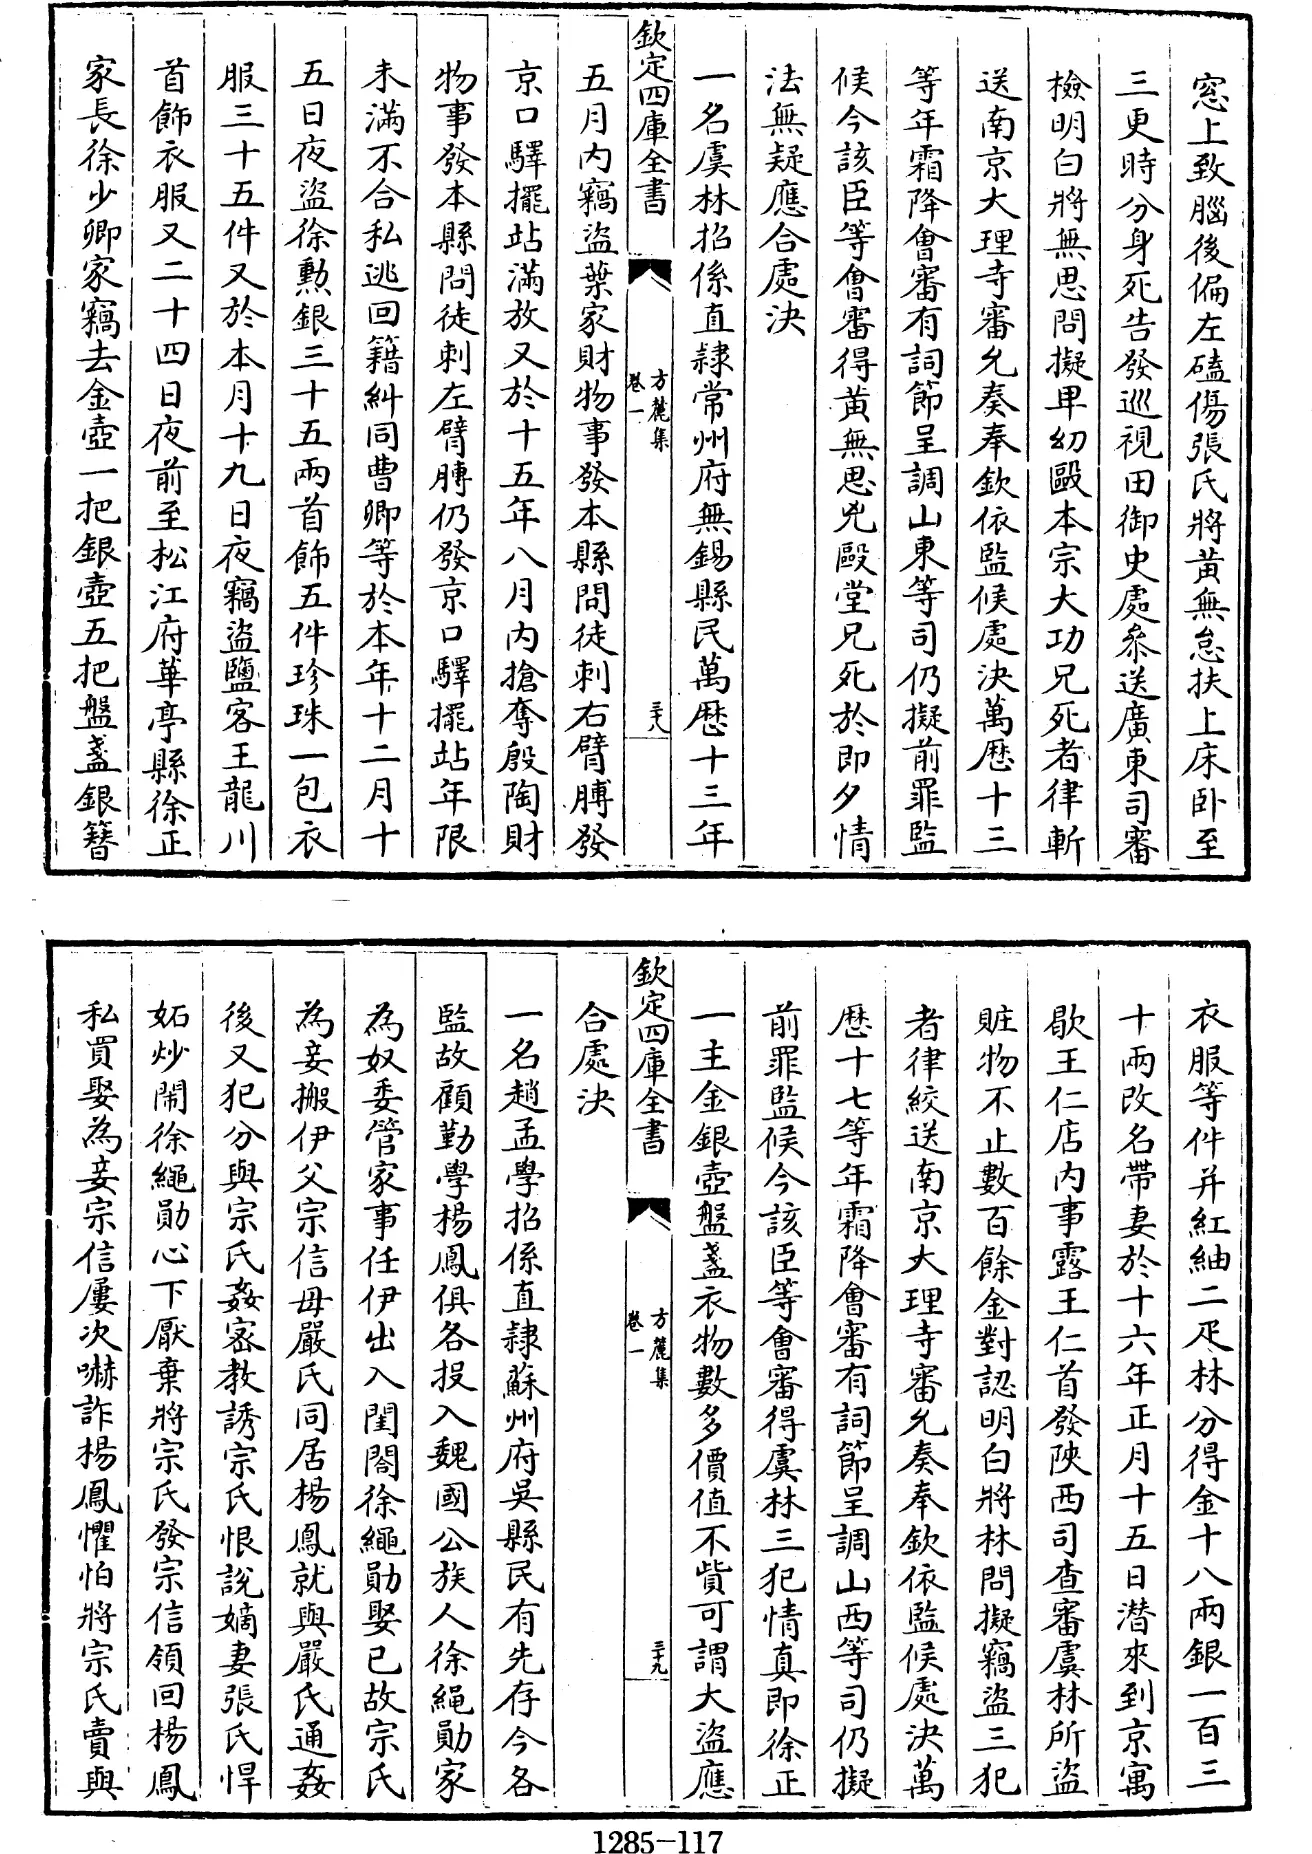 窓上致腦後偏左磕傷張氏將黄無怠扶上床卧至
三更時分身死告發巡視田御史處叅送廣東司審
檢明白將無思問擬卑幼毆本宗大功兄死者律斬
送南京大理寺審允奏奉欽依監候處決萬厯十三
等年霜降會審有詞節呈調山東等司仍擬前罪監
候今該臣等會審得黄無思兇毆堂兄死於即夕情
法無疑應合處決
一名虞林招係直隷常州府無錫縣民萬厯十三年
欽定四庫全書
方麓集
卷一
三十八
五月内竊盜葉家財物事發本縣問徒刺右臂膊發
京口驛擺站滿放又於十五年八月内搶奪殷陶財
物事發本縣問徒刺左臂膊仍發京口驛擺站年限
未滿不合私逃回籍糾同曹卿等於本年十二月十
五日夜盜徐勲銀三十五兩首飾五件珍珠一包衣
服三十五件又於本月十九日夜竊盜鹽客王龍川
首飾衣服又二十四日夜前至松江府華亭縣徐正
家長徐少卿家竊去金壺一把銀壺五把盤盞銀簪
衣服等件并紅紬二疋林分得金十八兩銀一百三
十兩改名帶妻於十六年正月十五日潛來到京寓
歇王仁店内事露王仁首發陜西司查審虞林所盜
賍物不止數百餘金對認明白將林問擬竊盜三犯
者律絞送南京大理寺審允奏奉欽依監候處決萬
厯十七等年霜降會審有詞節呈調山西等司仍擬
前罪監候今該臣等會審得虞林三犯情真即徐正
一主金銀壺盤盞衣物數多價值不貲可謂大盜應
欽定四庫全書
方麓集
卷一
三十九
合處決
一名趙孟學招係直隷蘇州府吳縣民有先存今各
監故顧勤學楊鳳俱各投入魏國公族人徐繩勛家
為奴委管家事任伊出入閨閤徐繩勛娶已故宗氏
為妾搬伊父宗信母嚴氏同居楊鳳就與嚴氏通姦
後又犯分與宗氏姦宻教誘宗氏恨説嫡妻張氏悍
妬炒鬧徐繩勛心下厭棄將宗氏發宗信領回楊鳳
私買娶為妾宗信屢次嚇詐楊鳳懼怕將宗氏賣與
1285-117